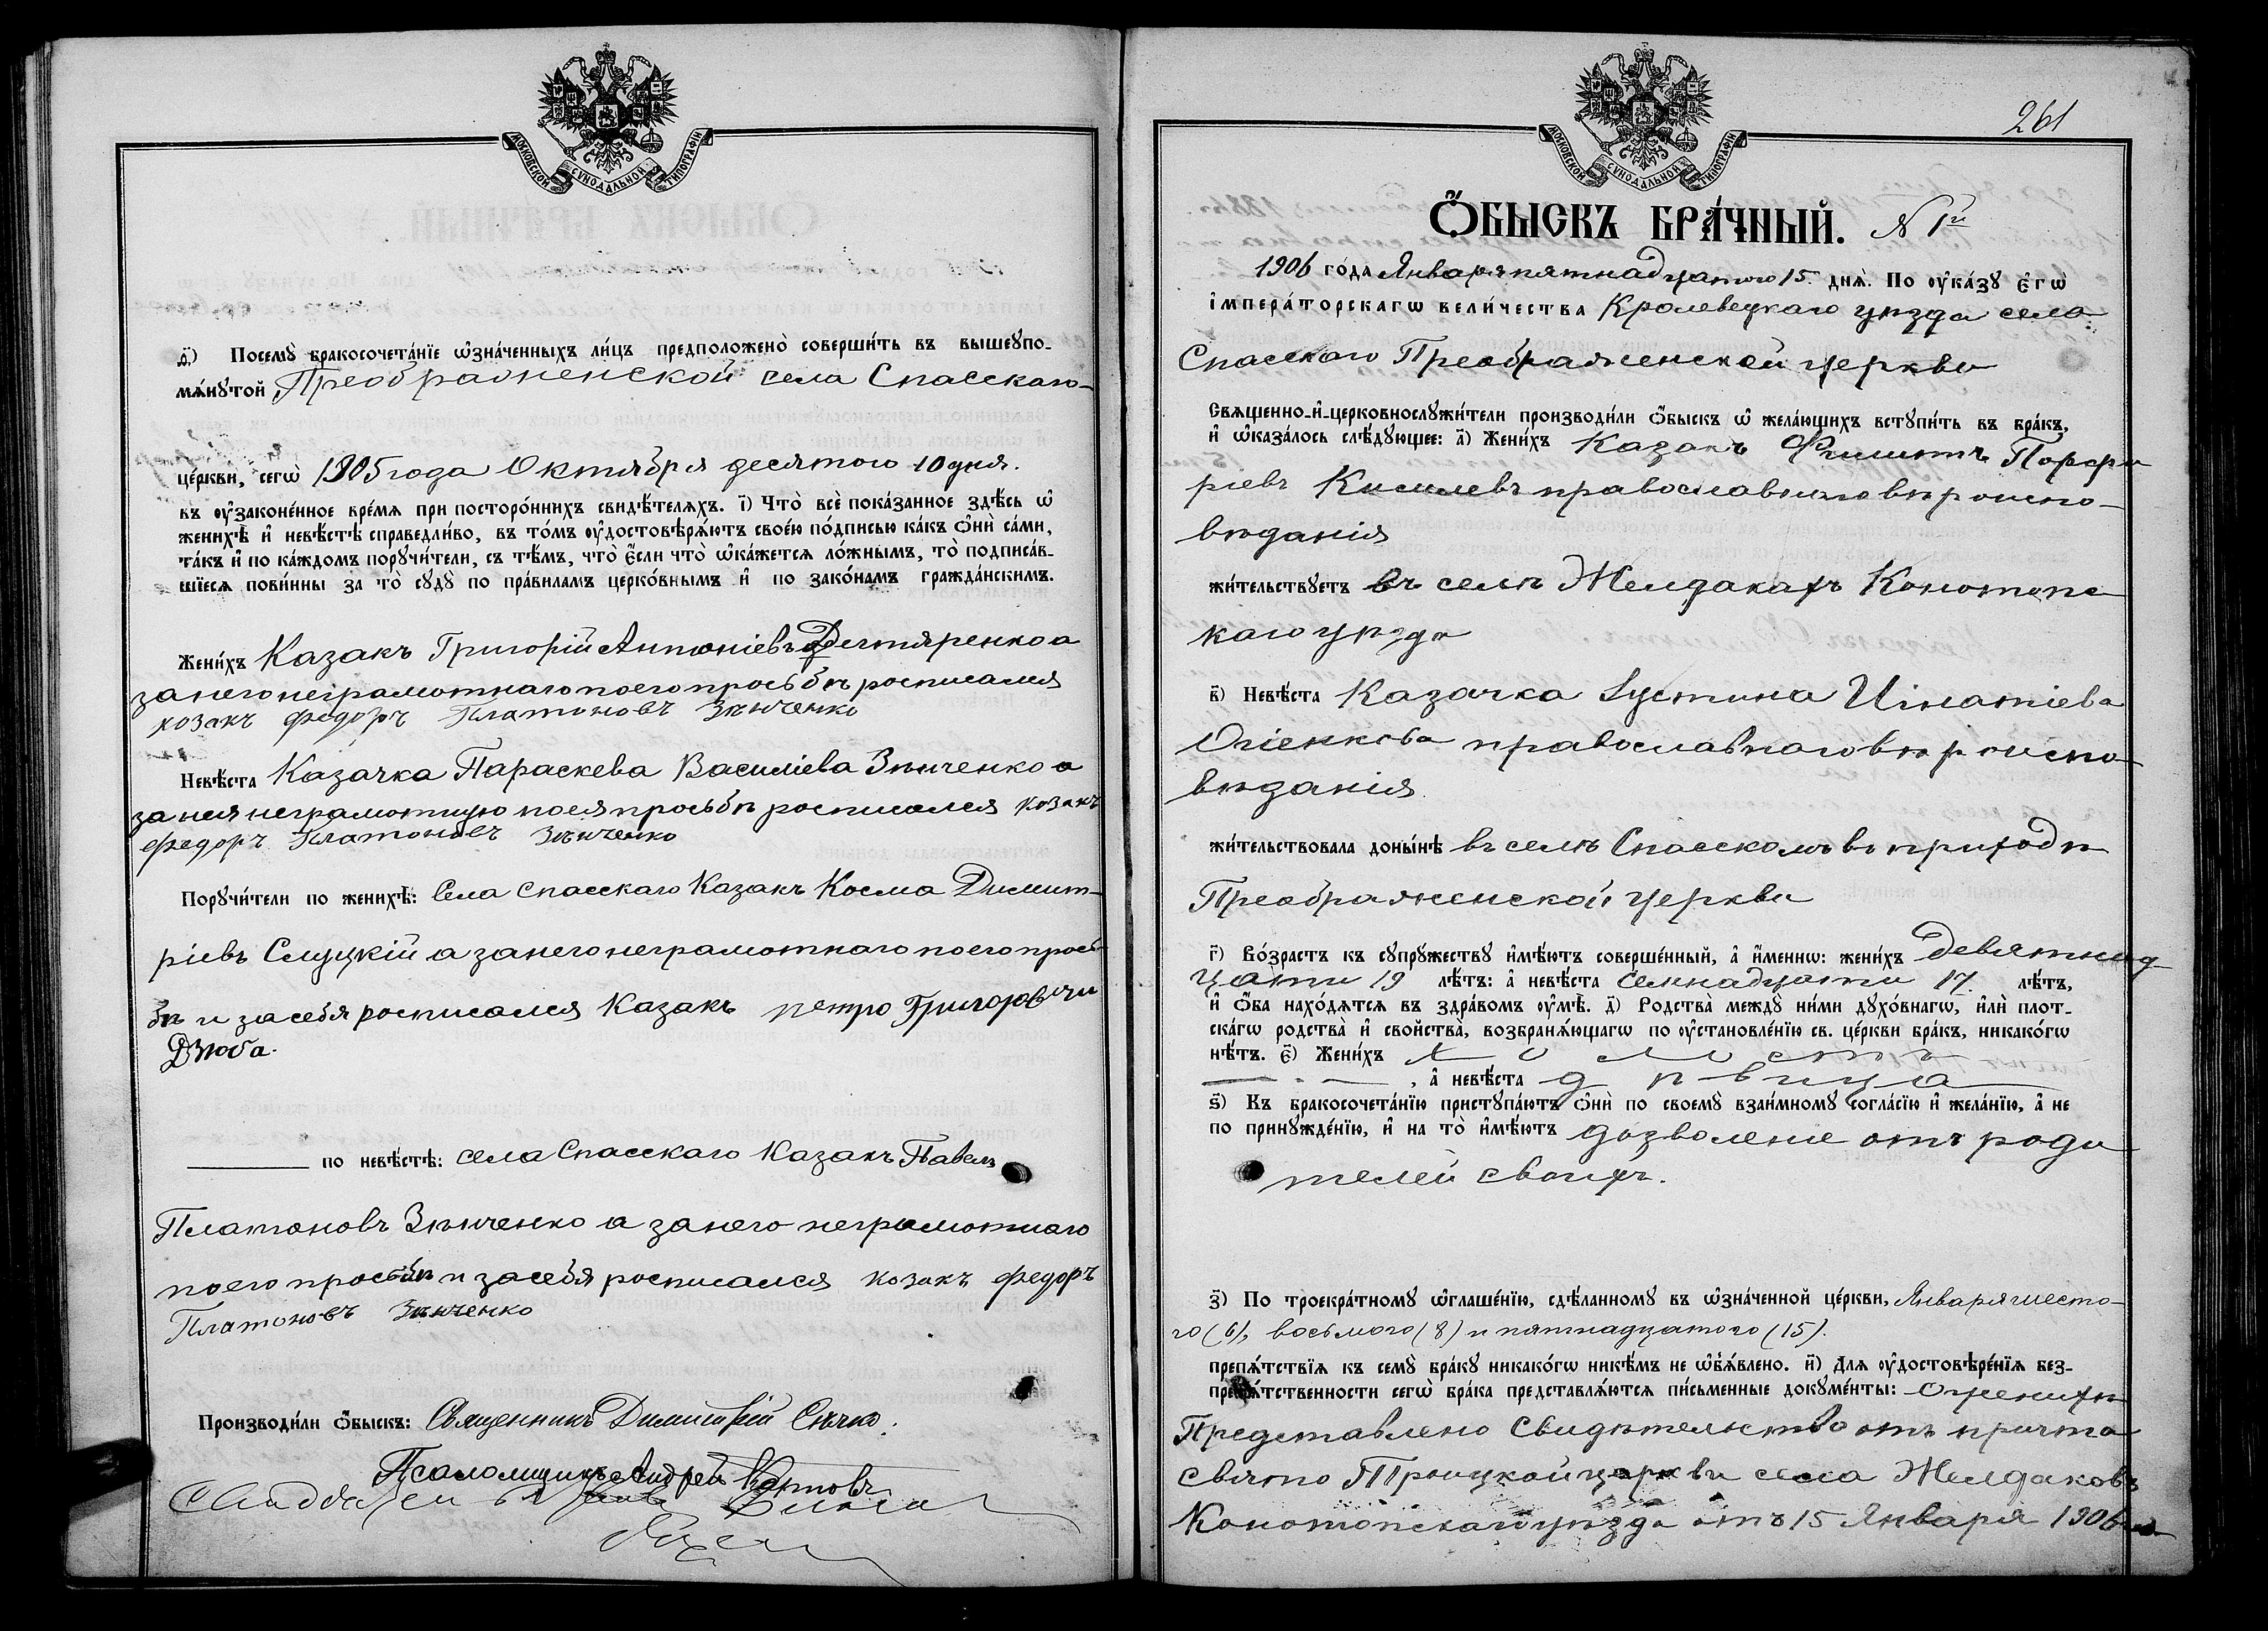 МОСКОВСКОЙ СѴНОДАЛЬНОЙ ТИПОГРАФІИ
ѳ҃) Посемꙋ̀ бракосочета́нїе ѡ҆зна́ченныхъ ли́цъ предположенò соверши́ть въ вышеꙋпо-
мѧ́нꙋтой Преображенской села Спасскаго
це́ркви, сегѡ̀ 1905 года Октября десятого 10 дня.
въ ᲂу҆зако́ненное вре́мѧ при посторо́ннихъ свидѣ́телѧхъ. і҃) Чтò всѐ пока́занное здѣ́сь ѡ҆
женихѣ̀ и҆ невѣ́стѣ справедли́во, въ то́мъ ᲂу҆достовѣрѧ́ютъ свое́ю по́дписью ка́къ ѻ҆нѝ са́ми,
та́къ и҆ по ка́ждомъ порꙋчи́тели, съ тѣ́мъ, чтò є҆́сли чтò ѡ҆ка́жетсѧ ло́жнымъ, тò подписа́в-
шїесѧ пови́нны за тò сꙋдꙋ̀ по пра́виламъ церко́внымъ и҆ по зако́намъ гражда́нскимъ.
Жени́хъ Казакъ Григорій Антоніевъ Дегтяренко а
за него неграмотнаго по его просьбѣ росписался
козакъ федоръ Платоновъ Зѣнченко
Невѣ́ста Казачка Параскева Василіева Зѣнченко а
за нея неграмотную по ея просьбѣ росписался козакъ
федоръ Платоновъ Зѣнченко
Порꙋчи́тели по женихѣ̀: Села Спасскаго Казакъ Косма Димит-
ріевъ Слуцкій а за него неграмотнаго по его прось-
бѣ и за себя росписался Казакъ петро Григоровичи
Дзюба.
по невѣ́стѣ: села Спасскаго Казакъ Павелъ
Платоновъ Зѣнченко а за него неграмотнаго
по его просьбѣ и за себя росписался козакъ федоръ
Платоновъ Зѣнченко
Производи́ли ѻ҆́быскъ: Священникъ Димитрій Сѣчко.
Псаломщикъ Андрей
261
МОСКОВСКОЙ СѴНОДАЛЬНОЙ ТИПОГРАФІИ
Ѻ҆́БЫСКЪ БРА́ЧНЫЙ. N 1й
1906 го́да Января пятнадцатого 15. днѧ̀. По ᲂу҆ка́зꙋ є҆гѡ̀
і҆мпера́торскагѡ вели́чества Кролевецкаго уѣзда села
Спасскаго Преображенской церкви
Свѧщенно-и҆-церковнослꙋжи́тели производи́ли ѻ҆́быскъ ѡ҆ жела́ющихъ встꙋпи́ть въ бра́къ,
и҆ ѡ҆каза́лось слѣ́дꙋющее: а҃) Жени́хъ Казакъ Филиппъ Порфи
ріевъ Киселевъ православнаго вѣроиспо-
вѣданія
жи́тельствꙋетъ въ селѣ Желдакахъ Конотопс
каго уѣзда
в҃) Невѣ́ста Казачка Іустина Игнатіева
Огіенкова православнаго вѣроиспо
вѣданія.
жи́тельствовала доны́нѣ въ селѣ Спасскомъ въ приходѣ
Преображенской церкви
г҃) Во́зрастъ къ сꙋпрꙋ́жествꙋ и҆мѣ́ютъ совершéнный, а҆ и҆́меннѡ: жени́хъ девятнад
цати 19 лѣ́тъ: а҆ невѣ́ста семнадцати 17 лѣ́тъ,
и҆ ѻ҆́ба нахо́дѧтсѧ въ здра́вомъ ᲂу҆мѣ̀. д҃) Родства̀ междꙋ̀ ни́ми дꙋхо́внагѡ, и҆лѝ плот-
ска́гѡ родства̀ и҆ сво́йства, возбранѧ́ющагѡ по ᲂу҆становле́нїю св. це́ркви бра́къ, никако́гѡ
нѣ́тъ. є҃) Жени́хъ холостъ
, а҆ невѣ́ста дѣвица
ѕ҃) Къ бракосочета́нїю пристꙋпа́ютъ ѻ҆нѝ по своемꙋ̀ взаи́мномꙋ согла́сїю и҆ жела́нїю, а҆ не
по принꙋжде́нїю, и҆ на тò и҆мѣ́ютъ дозволеніе отъ роди
телей своихъ.
з҃) По троекра́тномꙋ ѡ҆глаше́нїю, сдѣ́ланномꙋ въ ѡ҆зна́ченной це́ркви, Января шесто-
го (6), восьмого (8) и пятнадцатого (15).
препѧ́тствїѧ къ семꙋ̀ бра́кꙋ никако́гѡ никѣ́мъ не ѡ҆б̾ѧ́влено. и҃) Длѧ ᲂу҆достовѣре́нїѧ без-
препѧ́тственности сегѡ̀ бра́ка представлѧ́ютсѧ пи́сьменные докꙋме́нты: О женихѣ
Представлено Свидѣтельство отъ причта
Свято Троицкой церкви села Желдаковъ
Конотопскаго уѣзда отъ 15 Января 1906